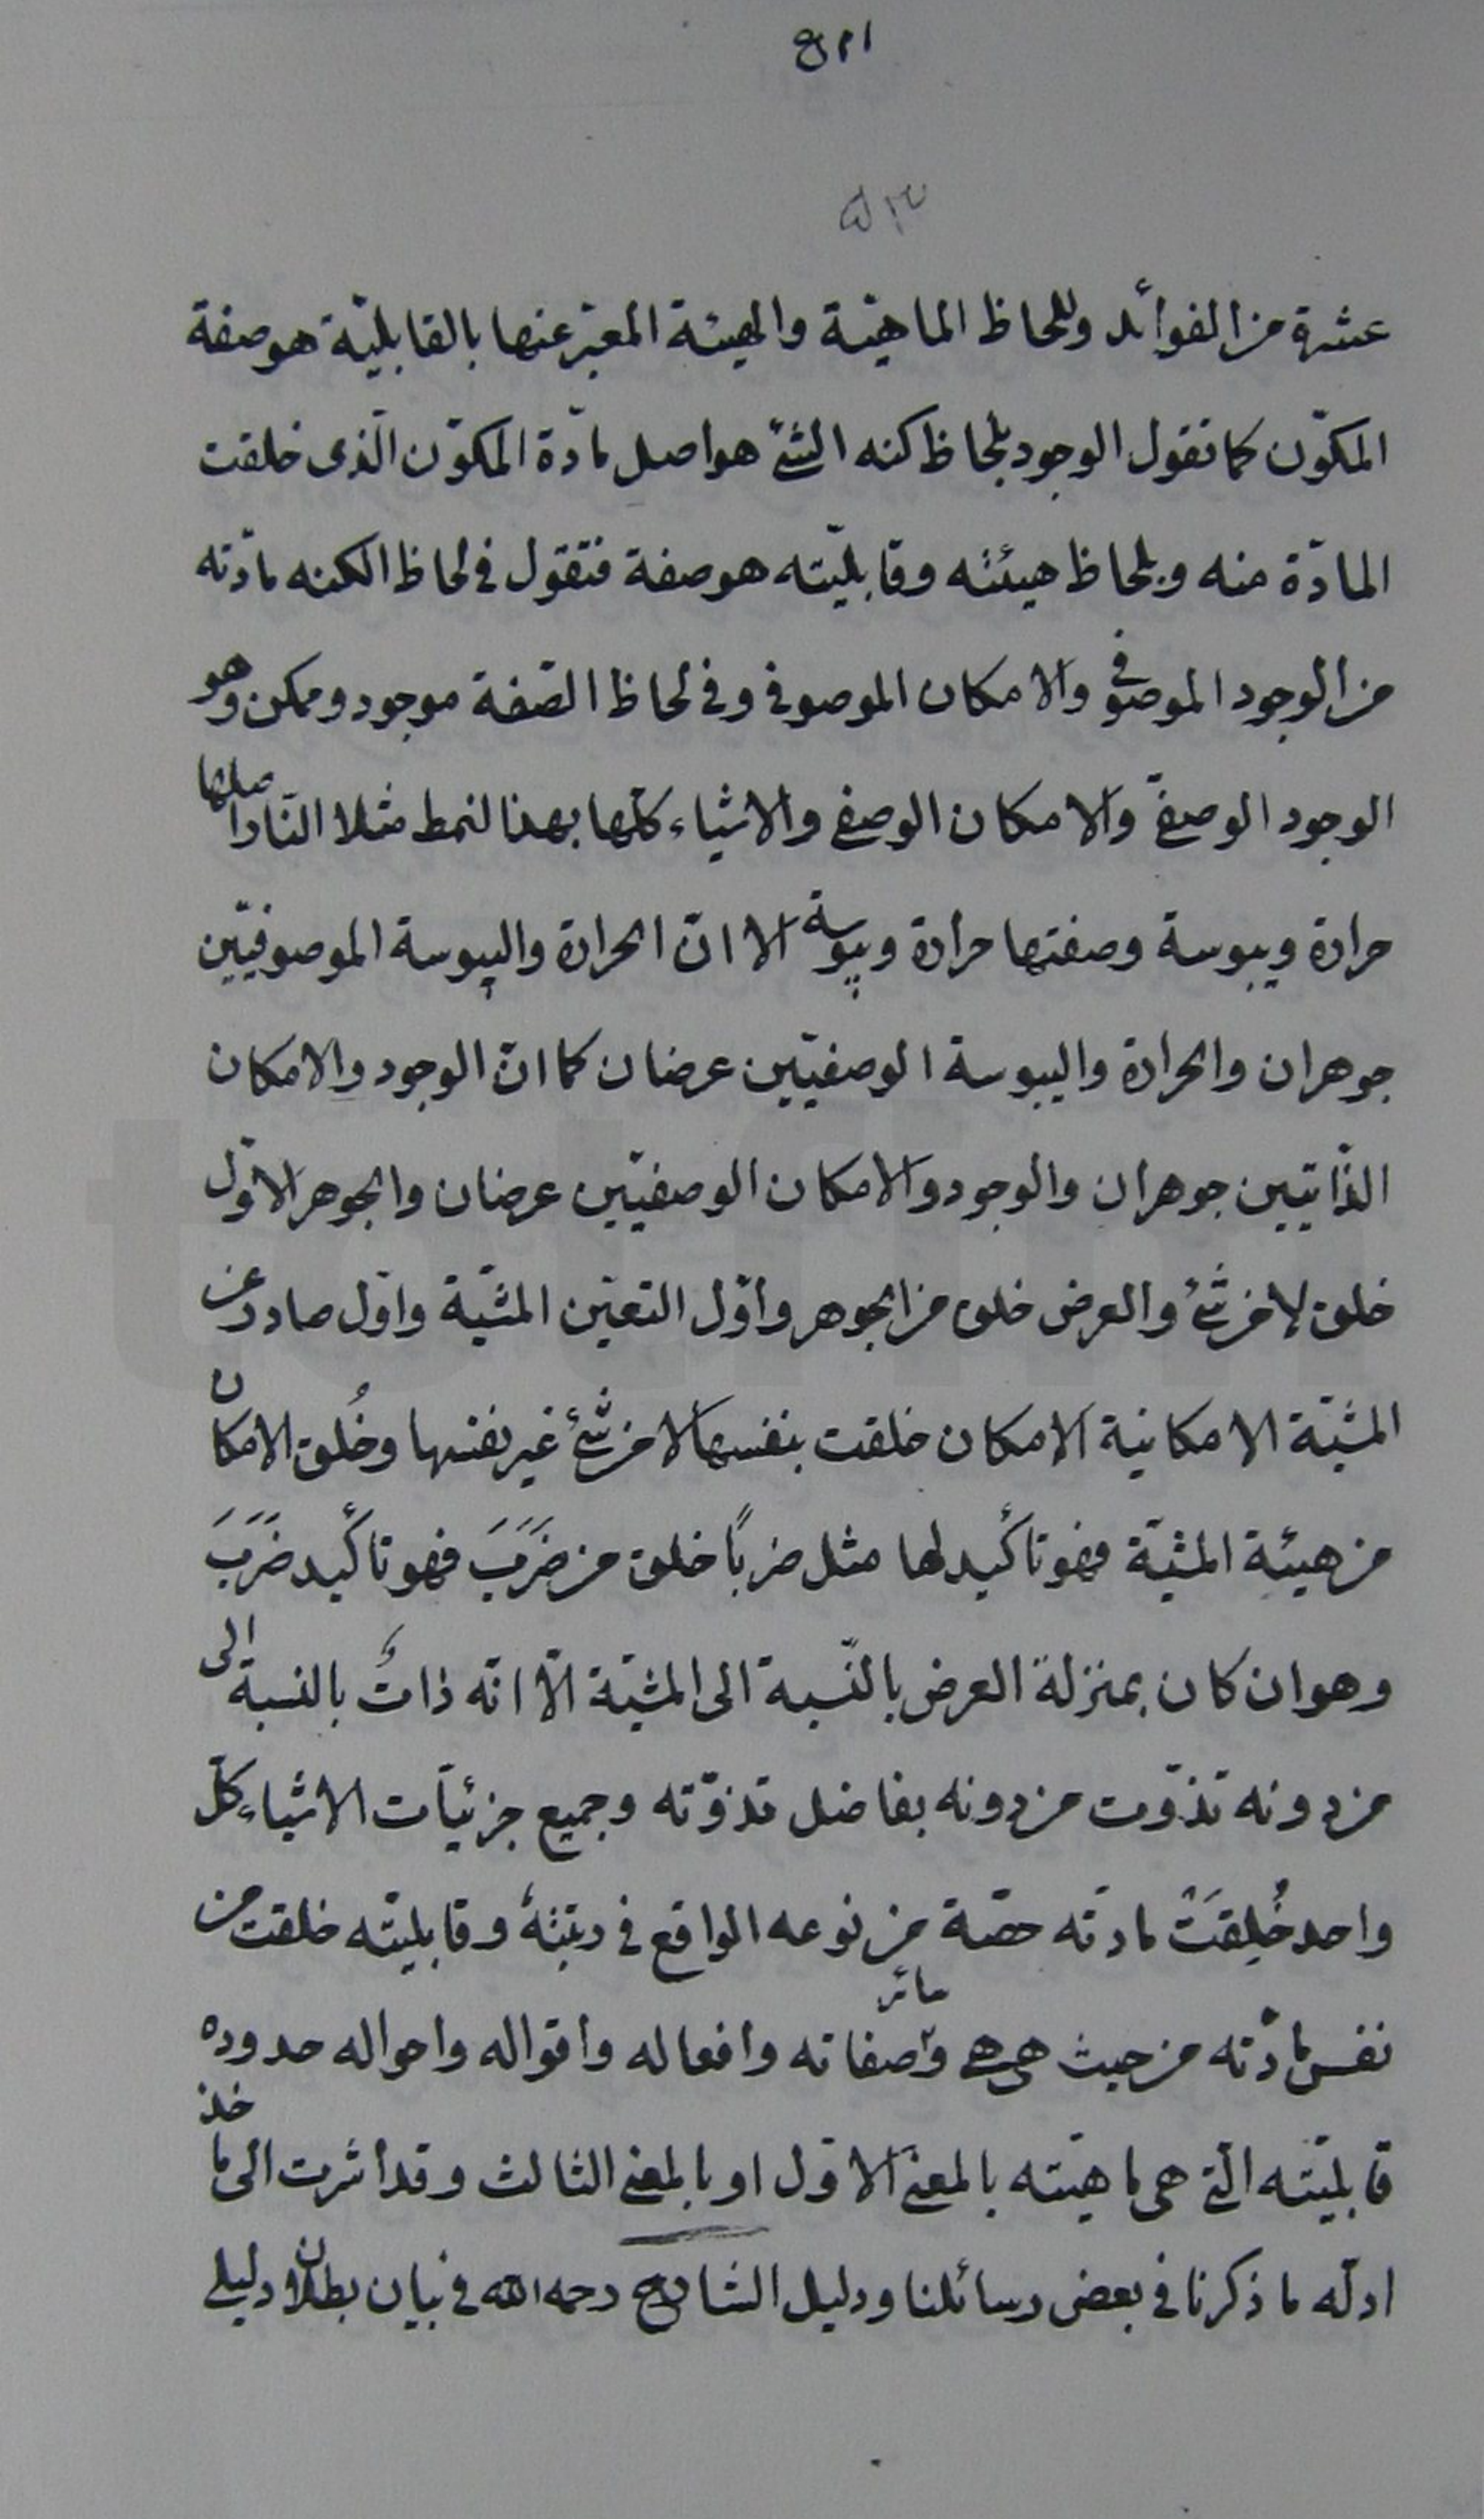 عشرة من الفوائد وللحاظ الماهيّة والهيئة المعبّر عنها بالقابليّة هو صفة
المكوّن كما تقول الوجود بلحاظ كنه الشئ هو اصل مادّة المكوّن الّذى خلقت
المادّة منه وبلحاظ هيئته وقابليّته هو صفة فتقول فى لحاظ الكنه مادّته
من الوجود الموصوفى والامكان الموصوفى وفى لحاظ الصّفة موجود وممكن وهو
الوجود الوصفىّ والامكان الوصفى والاشياء كلّها بهذا لنمط مثلا النّار اصلها
حرارة ويبوسة وصفتها حرارة ويبوسة الا انّ الحرارة واليبوسة الموصوفيّين
جوهران والحرارة واليبوسة الوصفيّين عرضان كما انّ الوجود والامكان
الذّاتيين جوهران والوجود والامكان الوصفيّين عرضان والجوهر الاوّل
خلق لا من شئ والعرض خلق من الجوهر واوّل التعيّن المشيّة واوّل صادر عن
المشيّة الامكانية الامكان خلقت بنفسها لا من شئ غير نفسها وخُلق الامكان
من هيئة المشيّة فهو تاكيد لها مثل ضربًا خلق من ضَرَبَ فهو تاكيد ضَرَبَ
وهو ان كان بمنزلة العرض بالنّسبة الى المشيّة الّا انّه ذاتٌ بالنسبة الى
من دونه تذوّت من دونه بفاضل تذوّته وجميع جزئيّات الاشياء كلّ
واحد خُلِقَتْ مادته حصّة من نوعه الواقع فى رتبته وقابليّته خلقت من
نفس مادّته من حيث هى هى وسائر صفاته وافعاله واقواله واحواله حدوده
قابليّته الّتى هى ماهيّته بالمعنى الاوّل او بالمعنى الثالث وقد اشرت الى ماخذ
ادلّه ما ذكرنا فى بعض رسائلنا ودليل الشارح رحمه الله فى بيان بطلان دليلى